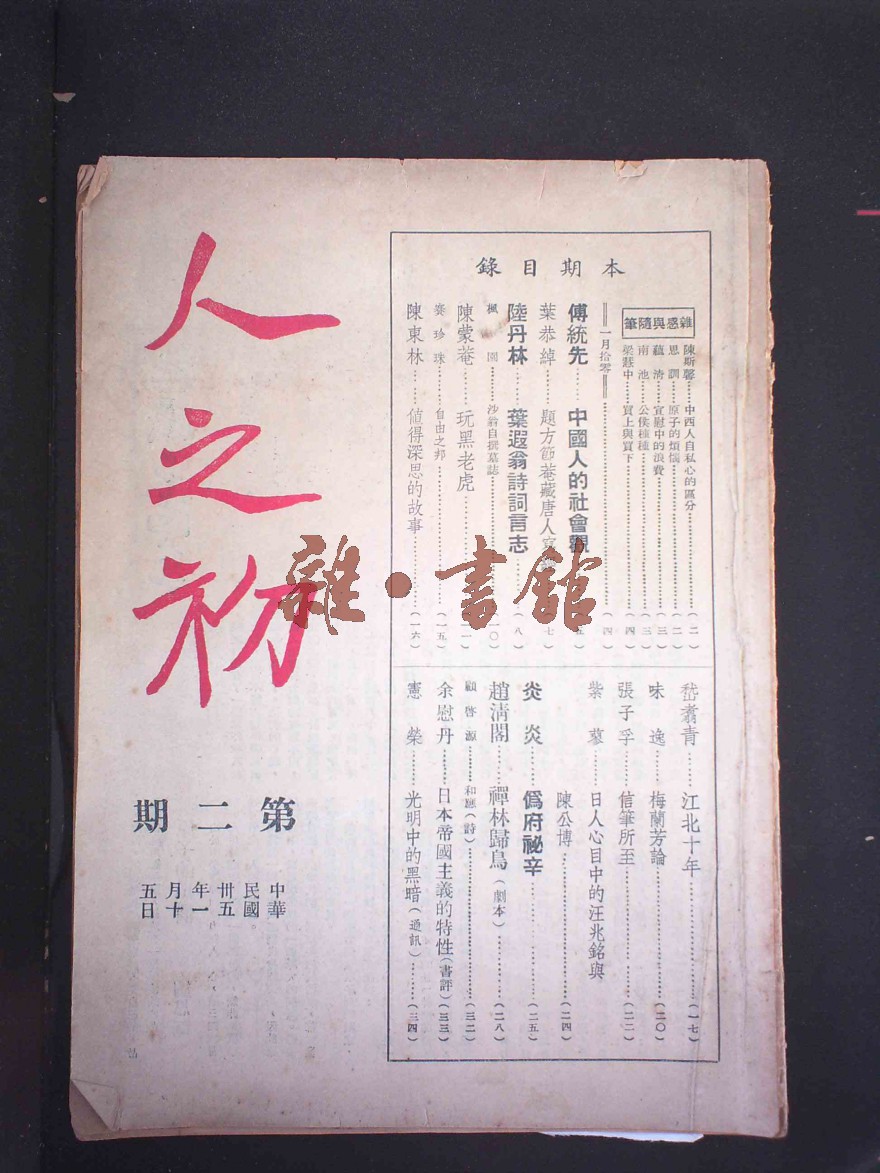 人之初
第二期
中華民國卅五年一月十五日
本期目錄
雜感與隨筆
陳斯馨……中西人自私心的區分……(二)
思訓……原子的煩惱……(二)
蘊清……宣慰中的浪費……(三)
南池……公僕種種……(三)
梁慧中……買上與買下……(四)
一月拾零……(四)
傅統先……中國人的社會觀……(五)
葉恭綽……題方節菴藏唐人寫……(七)
陸丹林……葉遐翁詩詞言志……(八)
楓園……沙翁自撰墓誌……(一〇)
陳蒙菴……玩黑老虎……
賽珍珠……自由之邦……(一五)
陳東林……值得深思的故事……(一六)
嵇翥青……江北十年……(一七)
味逸……梅蘭芳論……(二〇)
張子孚……信筆所至……(二二)
紫蓼……日人心目中的汪兆銘與
陳公博……(二四)
炎炎……僞府祕辛……(二五)
趙清閣……禪林歸鳥(劇本)……(二八)
顧啓源……和應(詩)……(三二)
余慰丹……日本帝國主義的特性(書評)……(三三)
憲榮……光明中的黑暗(通訊)……(三四)
雜·書館